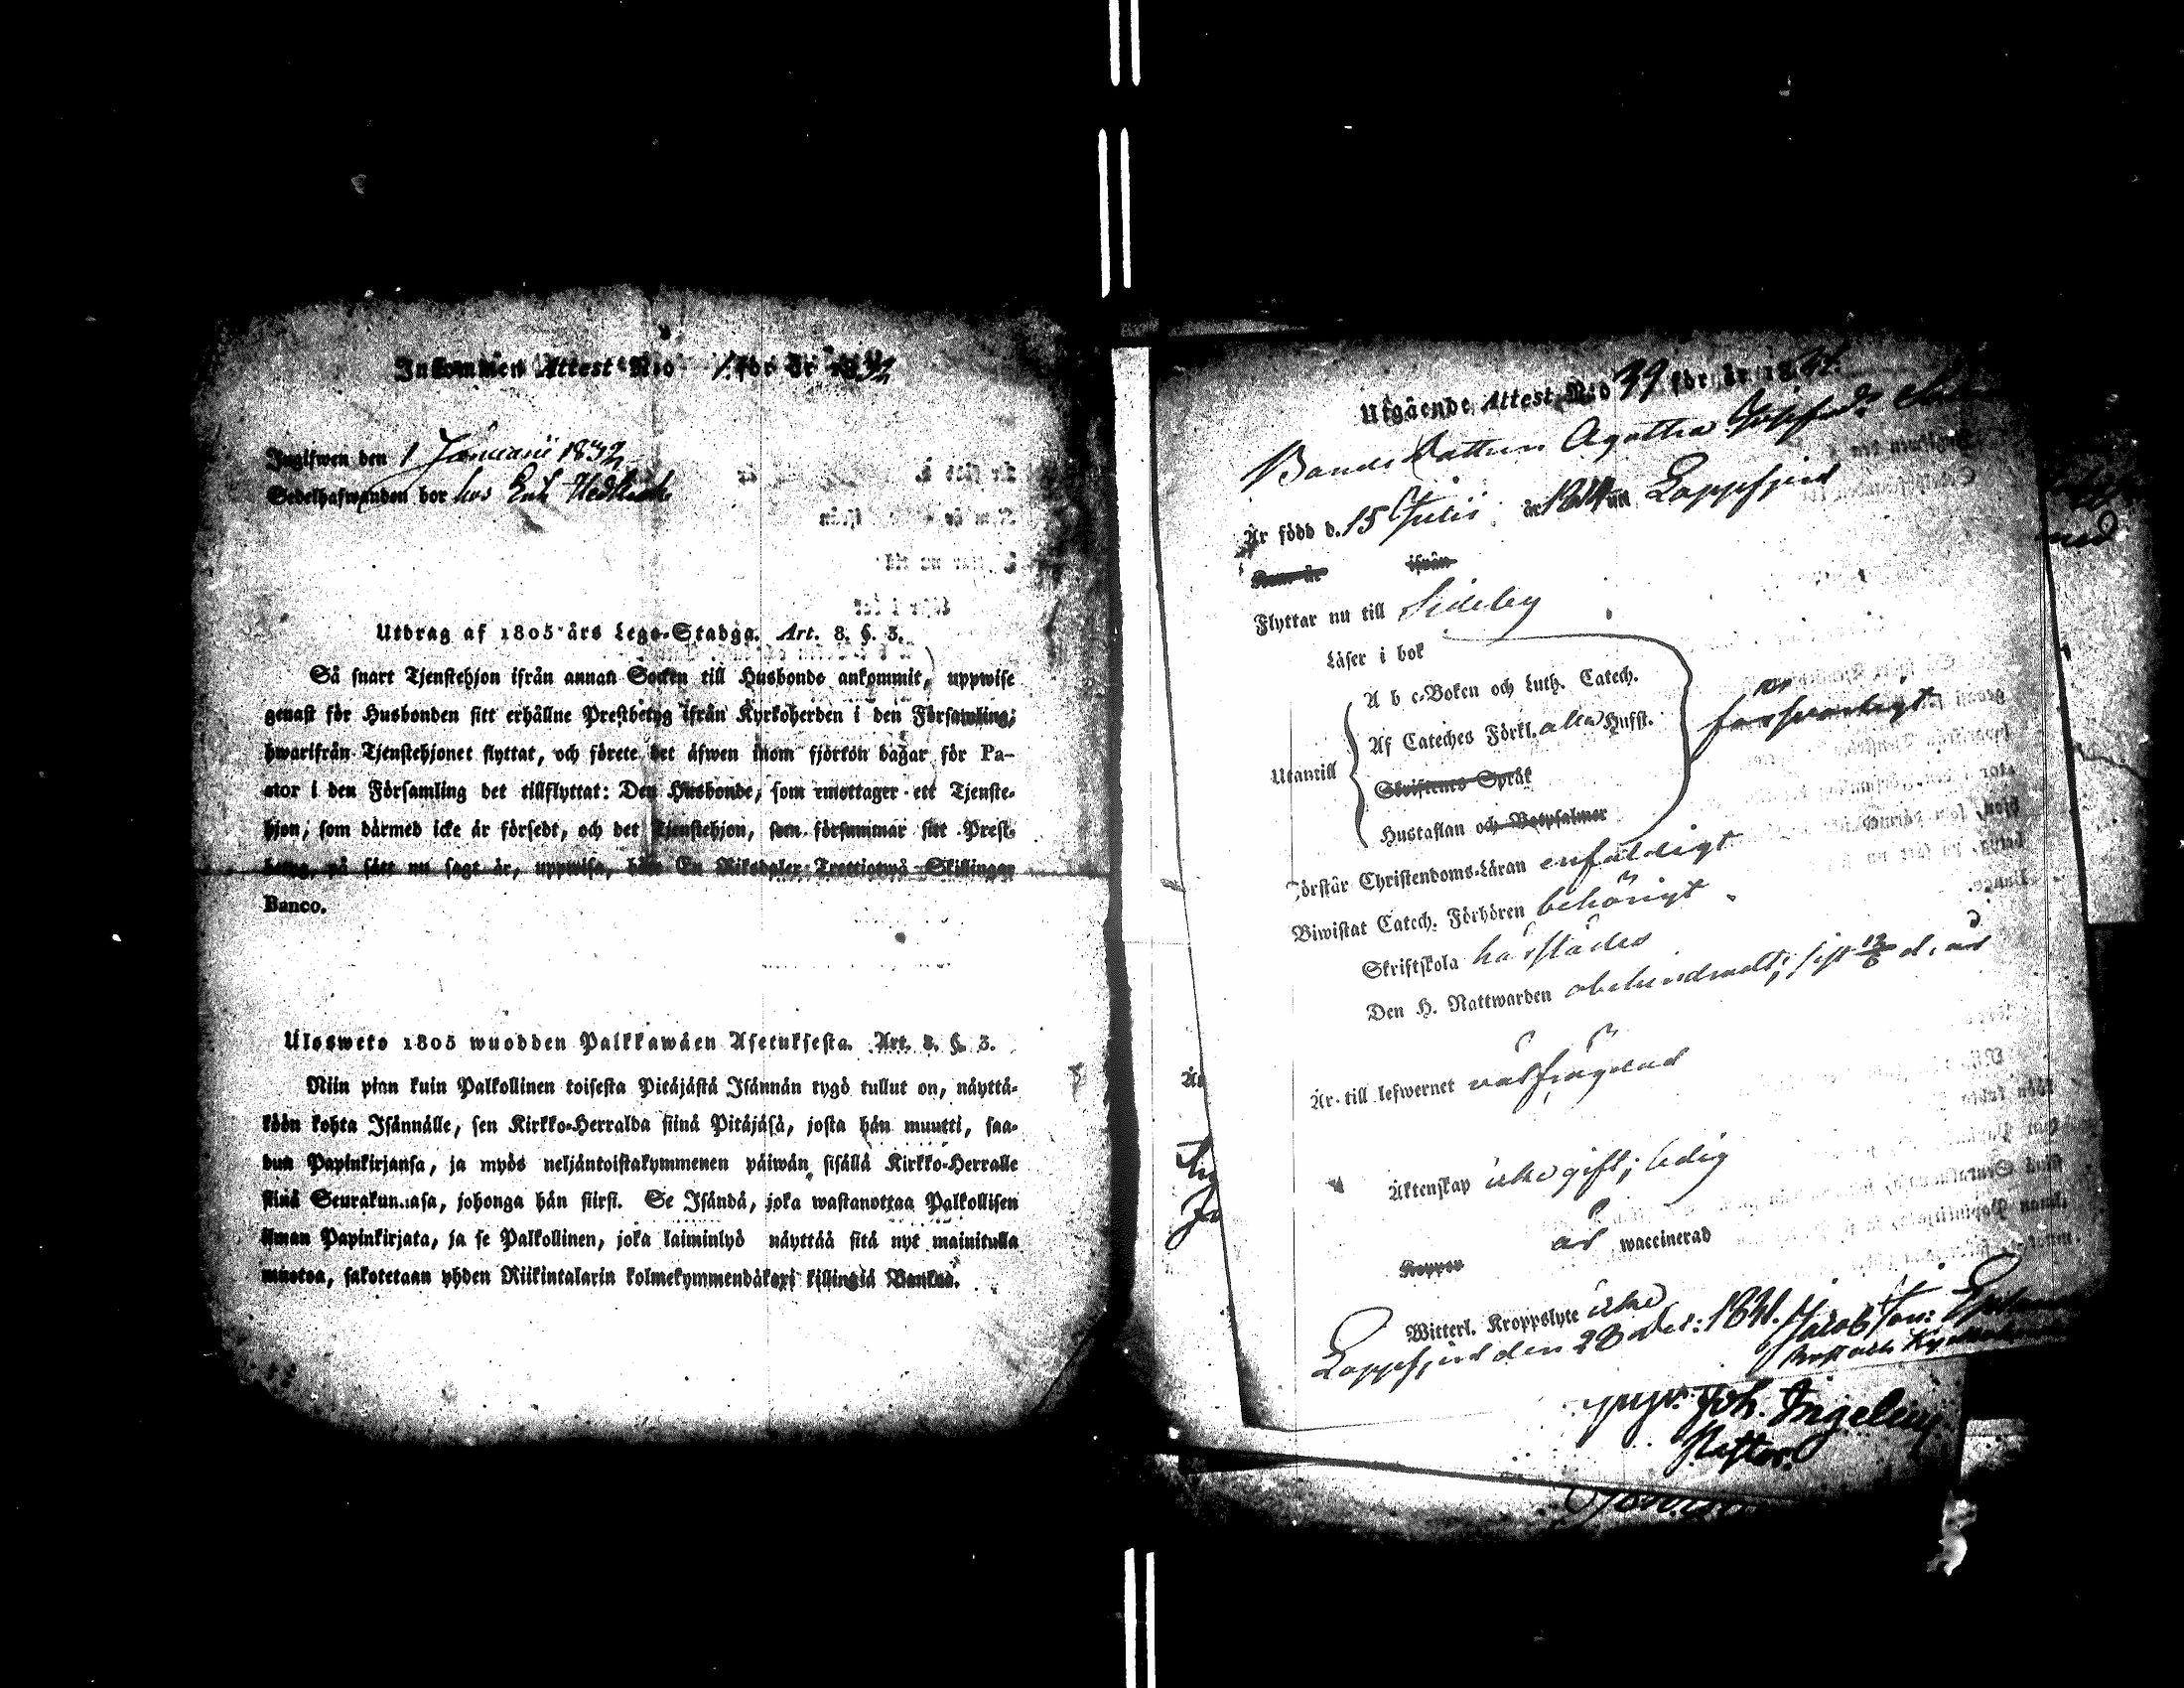 Inkommen Attest N:o 1. för år 1832
Inglfwen den 1 Januarii 1832
Sedelhafwanden bor hos Erik
Utdrag af 1805 års Lego-Stadga. Art. 8. §. 3.
Så snart Tjenstehjon ifrån annan Socken till Husbonde ankommit, uppwise
genast för Husbonden sitt erhållne Prestbetyg ifrån Kyrkoherden i den Församling,
hwarifrån Tjenstehjonet flyttat, och förete det äfwen inom fjorton dagar för Pa-
stor i den Församling det tillflyttat: Den Husbonde, som emottager ett Tjenste-
hjon, som därmed icke är försedt, och det Tjenstehjon, som försummar sitt Prest-
betyg, på sätt nu sagt är, uppwisa, böte En Riksdaler Trettiotwå Skillingar
Banco.
Ulosweto 1805 wuodden Palkkawäen Asetuksesta. Art. 8. §. 3.
Niin pian kuin Palkollinen toisesta Pitäjästä Isännän tygö tullut on, näyttä-
köön kohta Isännälle, sen Kirkko-Herralda siinä Pitäjäsä, josta hän muutti, saa-
dun Papinkirjansa, ja myös neljäntoistakymmenen päiwän sisällä Kirkko-Herralle
siinä Seurakunnasa, johonga hän siirsi. Se Isändä, joka wastanottaa Palkollisen
ilman Papinkirjata, ja se Palkollinen, joka laiminlyö näyttää sitä nyt mainitulla
muotoa, sakotetaan yhden Riikintalarin kolmekymmendäkaxi killingiä Bankos.
Utgående Attest N:o 39 för år 1831.
Bonde Dottren Agatha Josephsd:r
Är född d. 15 Julii år 1814 uti Lappfjerd
Kom år ifrån
Flyttar nu till Sideby
Läser i bok
A b c-Boken och Luth. Catech.
Af Cateches Förkl. alla Hufst.
Utantill
Skriftenes Språk
Hustaflan och Botpsalmer
försvarligt
Förstår Christendoms-Läran enfaldigt
Biwistat Catech. Förhören behörigt.
Skriftskola härstädes
Den H. Nattwarden obehindradt; sist 12/6 d. år
Är till lefwernet välfrägdad
Äktenskap icke gift; ledig
Koppor är waccinerad
Witterl. Kroppslyte icke
Lappfjerd den 28 Dec: 1831. Jacob Jon:
Prost och Kyrkoh
Joh. Ingelius
Pastor.